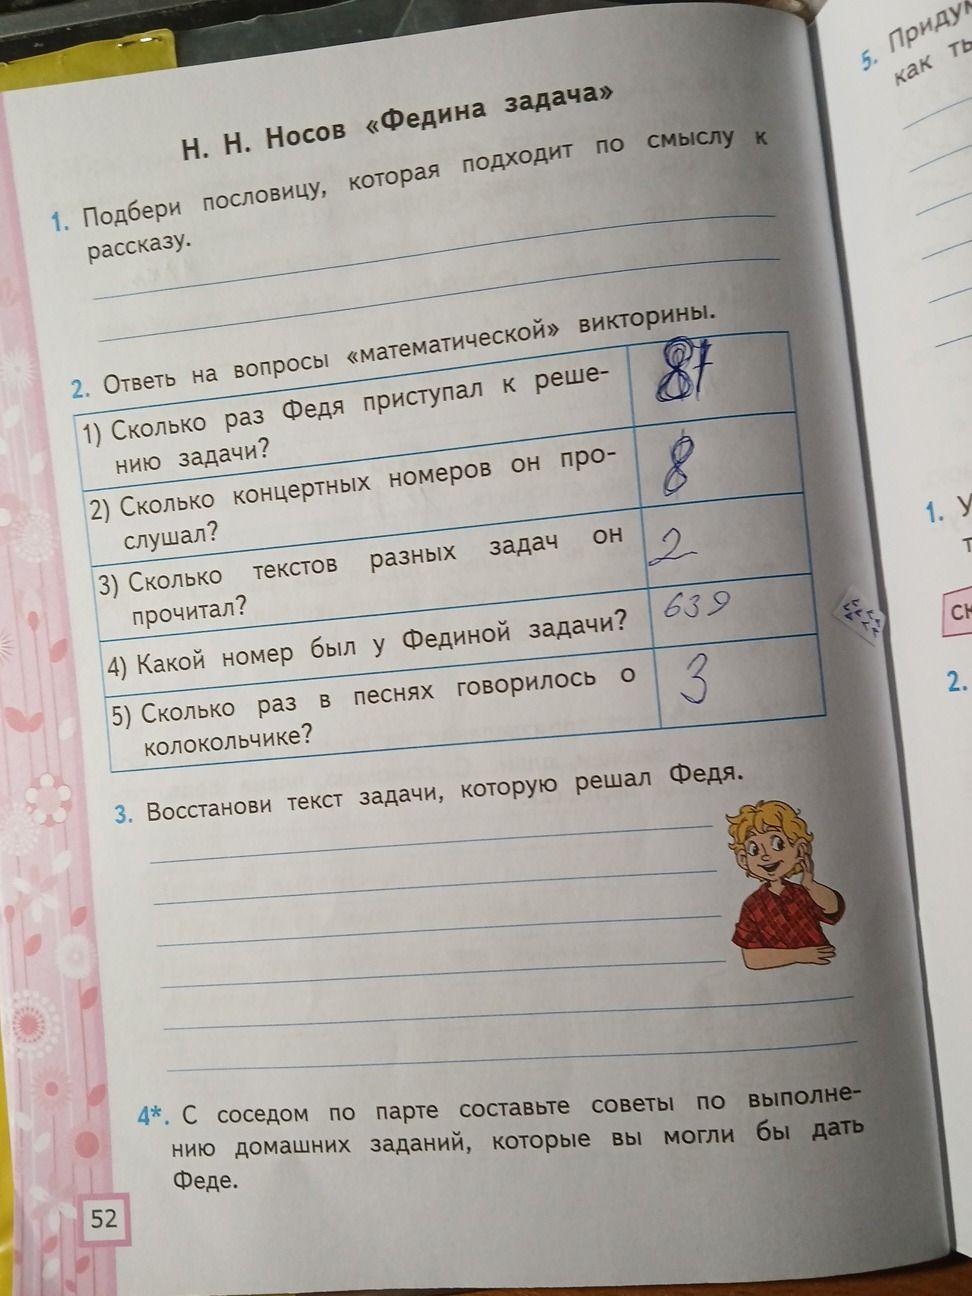 Н. Н. Носов «Федина задача»
1. Подбери пословицу, которая подходит по смыслу к
рассказу.
2. Ответь на вопросы «математической» викторины.
1) Сколько раз Федя приступал к реше-
нию задачи?
2) Сколько концертных номеров он про-
слушал?
8
3) Сколько текстов разных задач он
прочитал?
2
4) Какой номер был у Фединой задачи?
639
5) Сколько раз в песнях говорилось о
колокольчике?
3
3. Восстанови текст задачи, которую решал Федя.
4*. С соседом по парте составьте советы по выполне-
нию домашних заданий, которые вы могли бы дать
Феде.
52
5. Приду
как
1.
2.